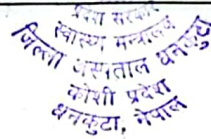 प्रदेश सरकार
स्वास्थ्य मन्त्रालय
जिल्ला अस्पताल धनकुटा
कोशी प्रदेश
धनकुटा, नेपाल